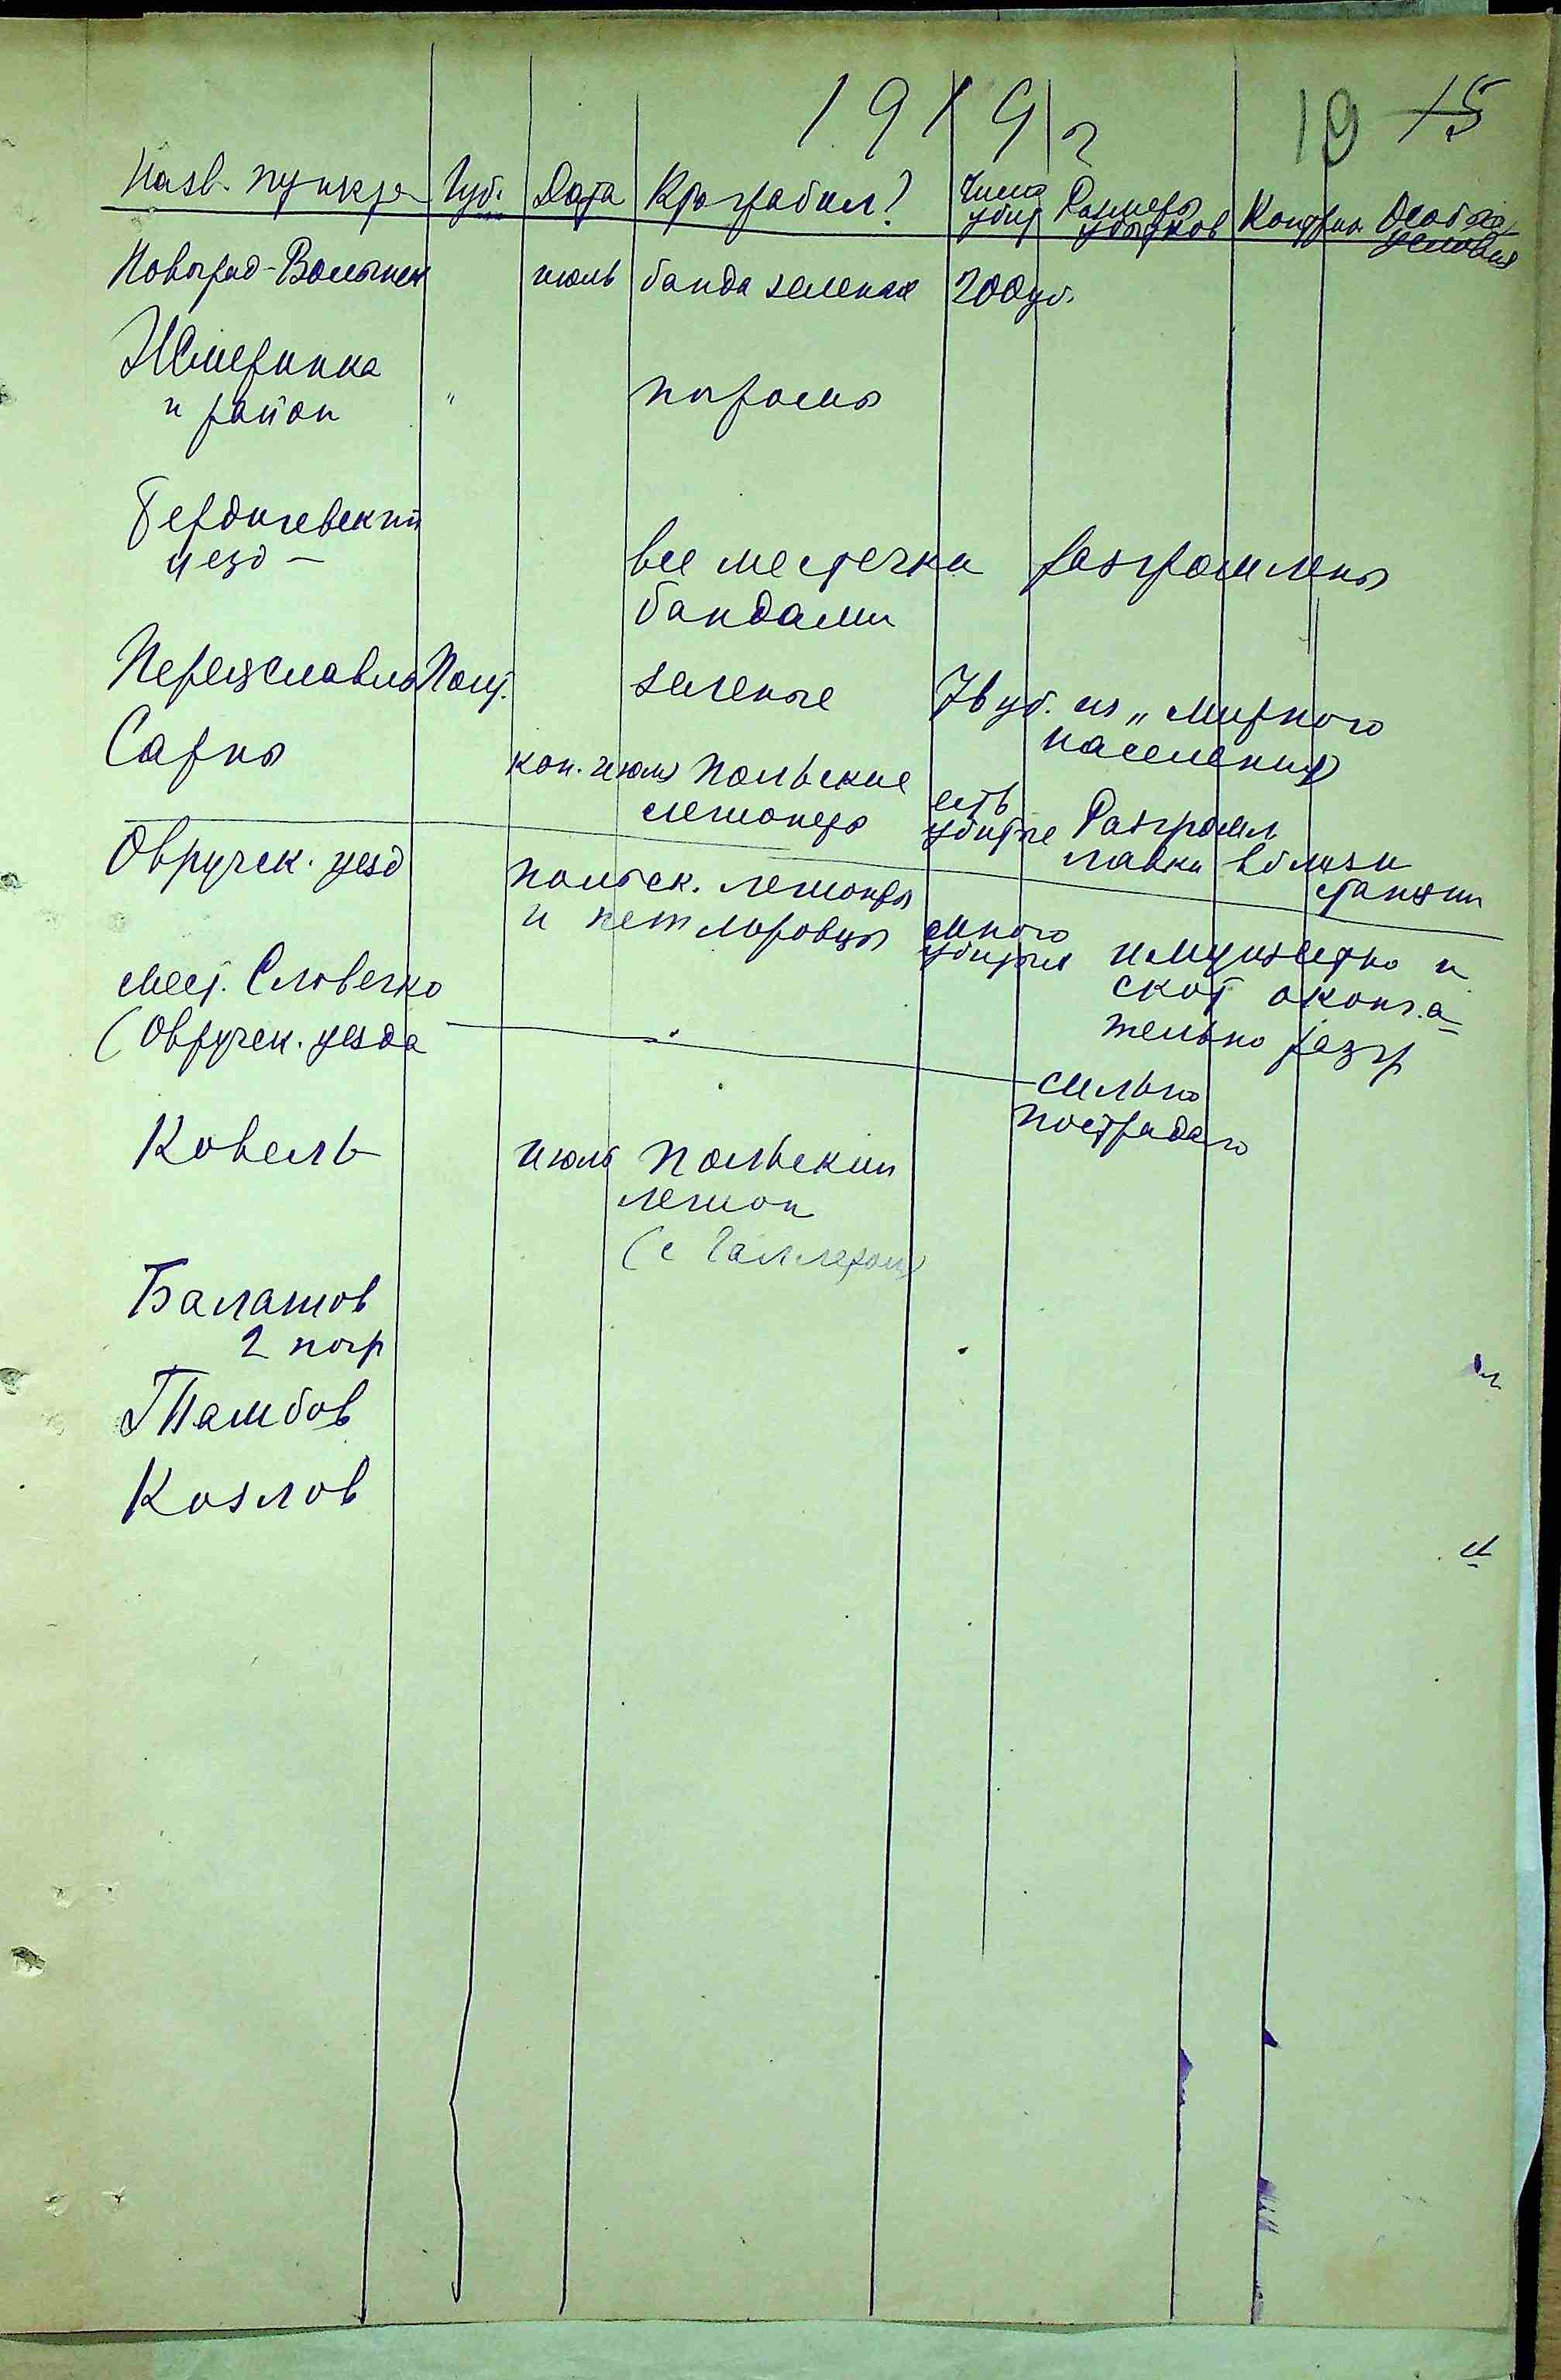 1919 г 19 15
Назв. пункта Губ. Дата Кто грабил? Число убит Размеры убытков Контриб. Особые условия
Новоград-Волынск июль банда зеленая 200 уб.
Жмеринка
и район " погромы
Бердичевский
уезд — все местечки разгромлены
бандами
Переяславль Полт. зеленые 7 в уб. из „мирного
населения
Сарны кон. июля Польские
легионеры есть
убитые Разгромл
лавки вблизи
станции
Овручск. уезд польск. легионеры
и петлюровцы много
убитых имущество и
скот оконча-
тельно разгр
Мест. Словечко
(Овручск. уезда — " — сильно
пострадало
Ковель июль Польский
легион
(с Галлером)
Балашов
2 погр
Тамбов
Козлов